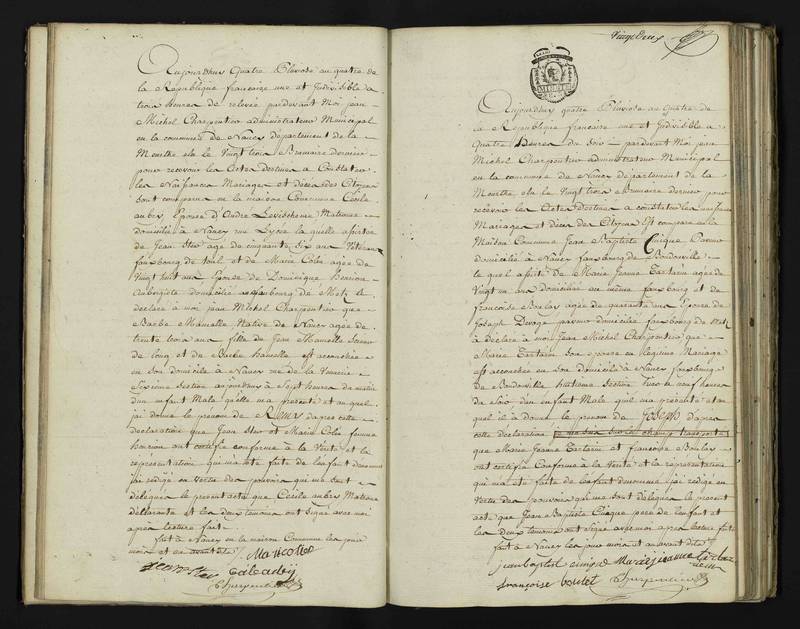 Aujourdhuy Quatre Pluviose au quatre de
la Republique francaise une et Indivisible a
trois heures de relevée pardevant Moi jean
Michel Charpentier administrateur Municipal
en la commune de Nancy département de la
Meurthe elu le Vingt trois Brumaire dernier
pour recevoir les Actes destinés a Constater
les Naissances Mariages et décès des Citoyens
sont comparue en la maison Commune Cécile
aubry Epouse d'Andre Matrone
domiciliée a Nancy rue la quelle assistée
de Jean Ster agé de cinquante six ans Vétéran
faubourg de toul et de Marie Colin agée de
Vingt huit ans Epouse de Dominique Henrion
Aubergiste domiciliée au faubourg de Metz a
declaré a moi jean Michel Charpentier que
Barbe Mamelle Native de Nancy agée de
trente trois ans fille de Jean Mamelle
de long et de Barbe Mamelle est accouchée
en son domicile a Nancy rue de la Venerie
Sixieme Section aujourdhuy a Sept heures du matin
d'un enfant Male qu'elle ma présenté et au quel
jai donné le prenom de Remy dapres cette
déclaration que Jean Ster et Marie Colin femme
henrion ont certifié conforme à la Vérité et la
représentation qui ma été faite de lenfant denommé
jai rédigé en Vertu des pouvoirs qui me sont
délégués le present acte que Cécile aubry Matrone
déclarante et les deux temoins ont Signé avec moi
apres lecture fait
fait a Nancy en la maison Commune les jour
mois et an avant dits Mari colin
jean ster
Charpentier
Vingt Deux
Aujourdhuy quatre Pluviose au Quatre de
la Republique francaise une et Indivisible a
Quatre Heures du Soir pardevant Moi jean
Michel Charpentier administrateur Municipal
en la commune de Nancy département de la
Meurthe elu le Vingt trois Brumaire dernier pour
recevoir les Actes destinés a constater les naissances
Mariages et décès des Citoyens Est comparu en la
Maison Commune Jean Baptiste Cunique
domicilié à Nancy faubourg de Bondonville
le quel assisté de Marie Jeanne Tartarin agée de
Vingt un ans domiciliée au même faubourg et de
francoise Boulay agée de quarante ans Epouse de
Joseph domicilié faubourg de Metz
a déclaré a moi Jean Michel Charpentier que
Marie Tartarin Son epouse en légitime Mariage
est accouchée en Son domicile a Nancy faubourg
de Bondonville huitieme Section hier a neuf heures
du Soir d'un Enfant Male quil ma présenté et au
quel il a donné le prenom de JOSEPH dapres
cette déclaration je me suis sur le champ transporté
que Marie Jeanne Tartarin et francoise Boulay
ont certifié Conforme à la Verité et la représentation
qui ma eté faite de lenfant denommé jai rédigé en
Vertu des pouvoirs qui me sont délégués le present
acte que Jean Baptiste Cunique pere de lenfant et
les deux temoins ont signé avec moi apres lecture fait
fait a Nancy les jour mois et an avant dits
jean baptist cunique marie jeanne
françoise boulet Charpentier